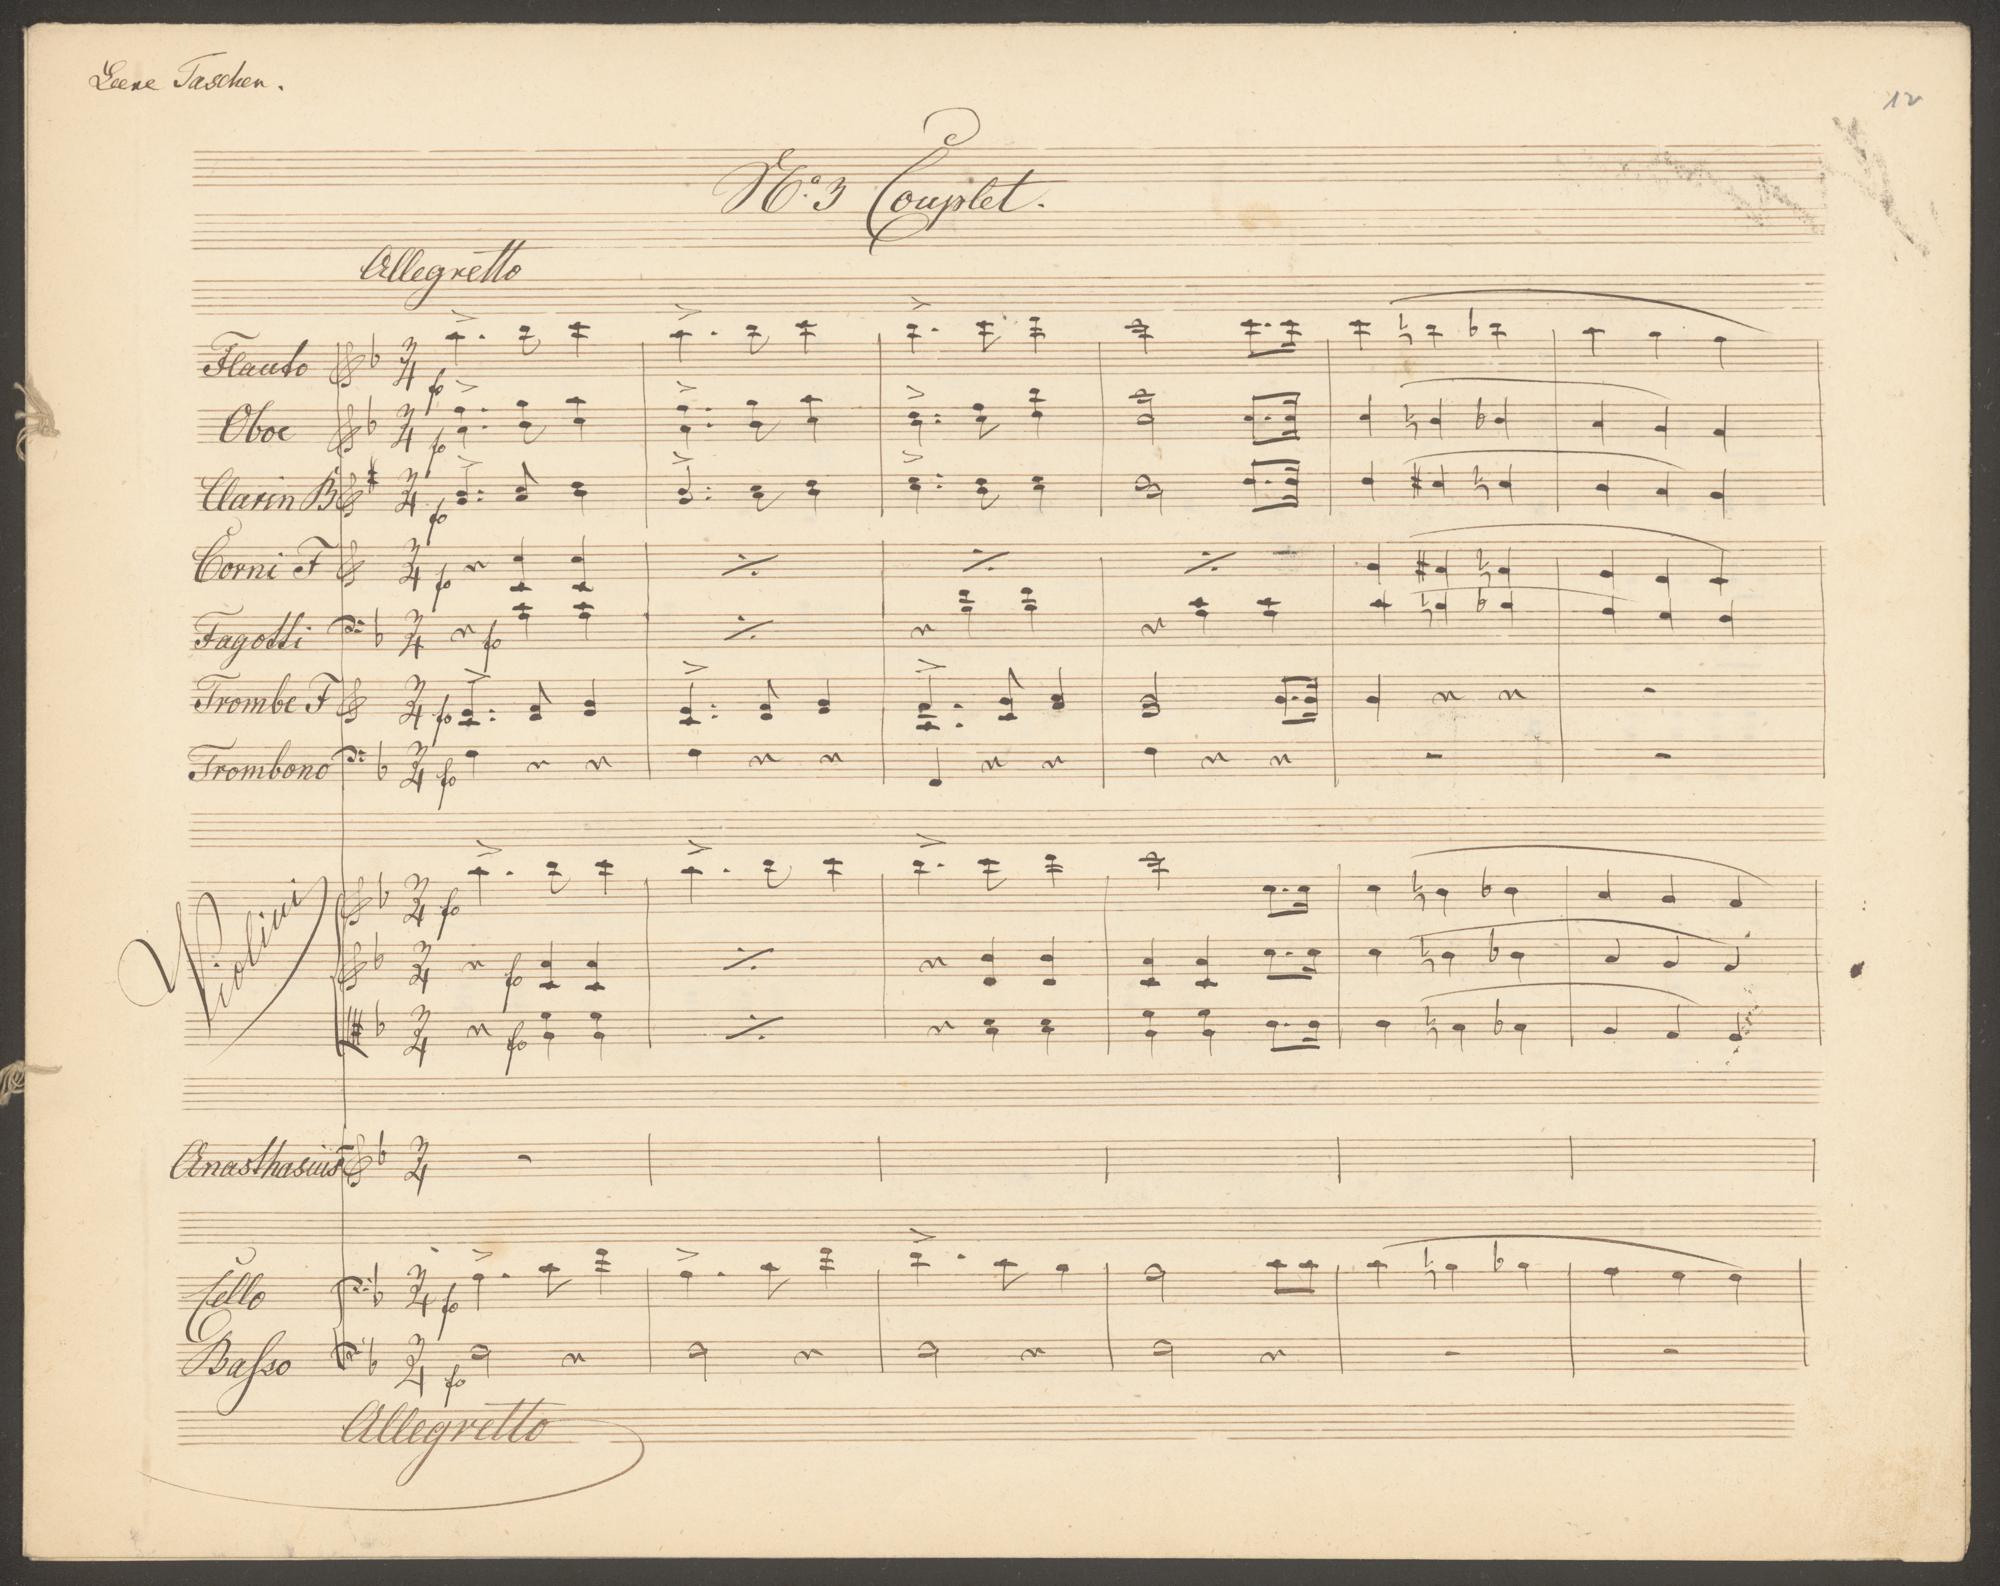 Leere Taschen.
12
No. 3 Couplet.
Allegretto
Flauto
Oboe
Clarin B
Corni F
Fagotti
Trombe F
Trombono
Violini
Anasthasius
Cello
Basso
Allegretto